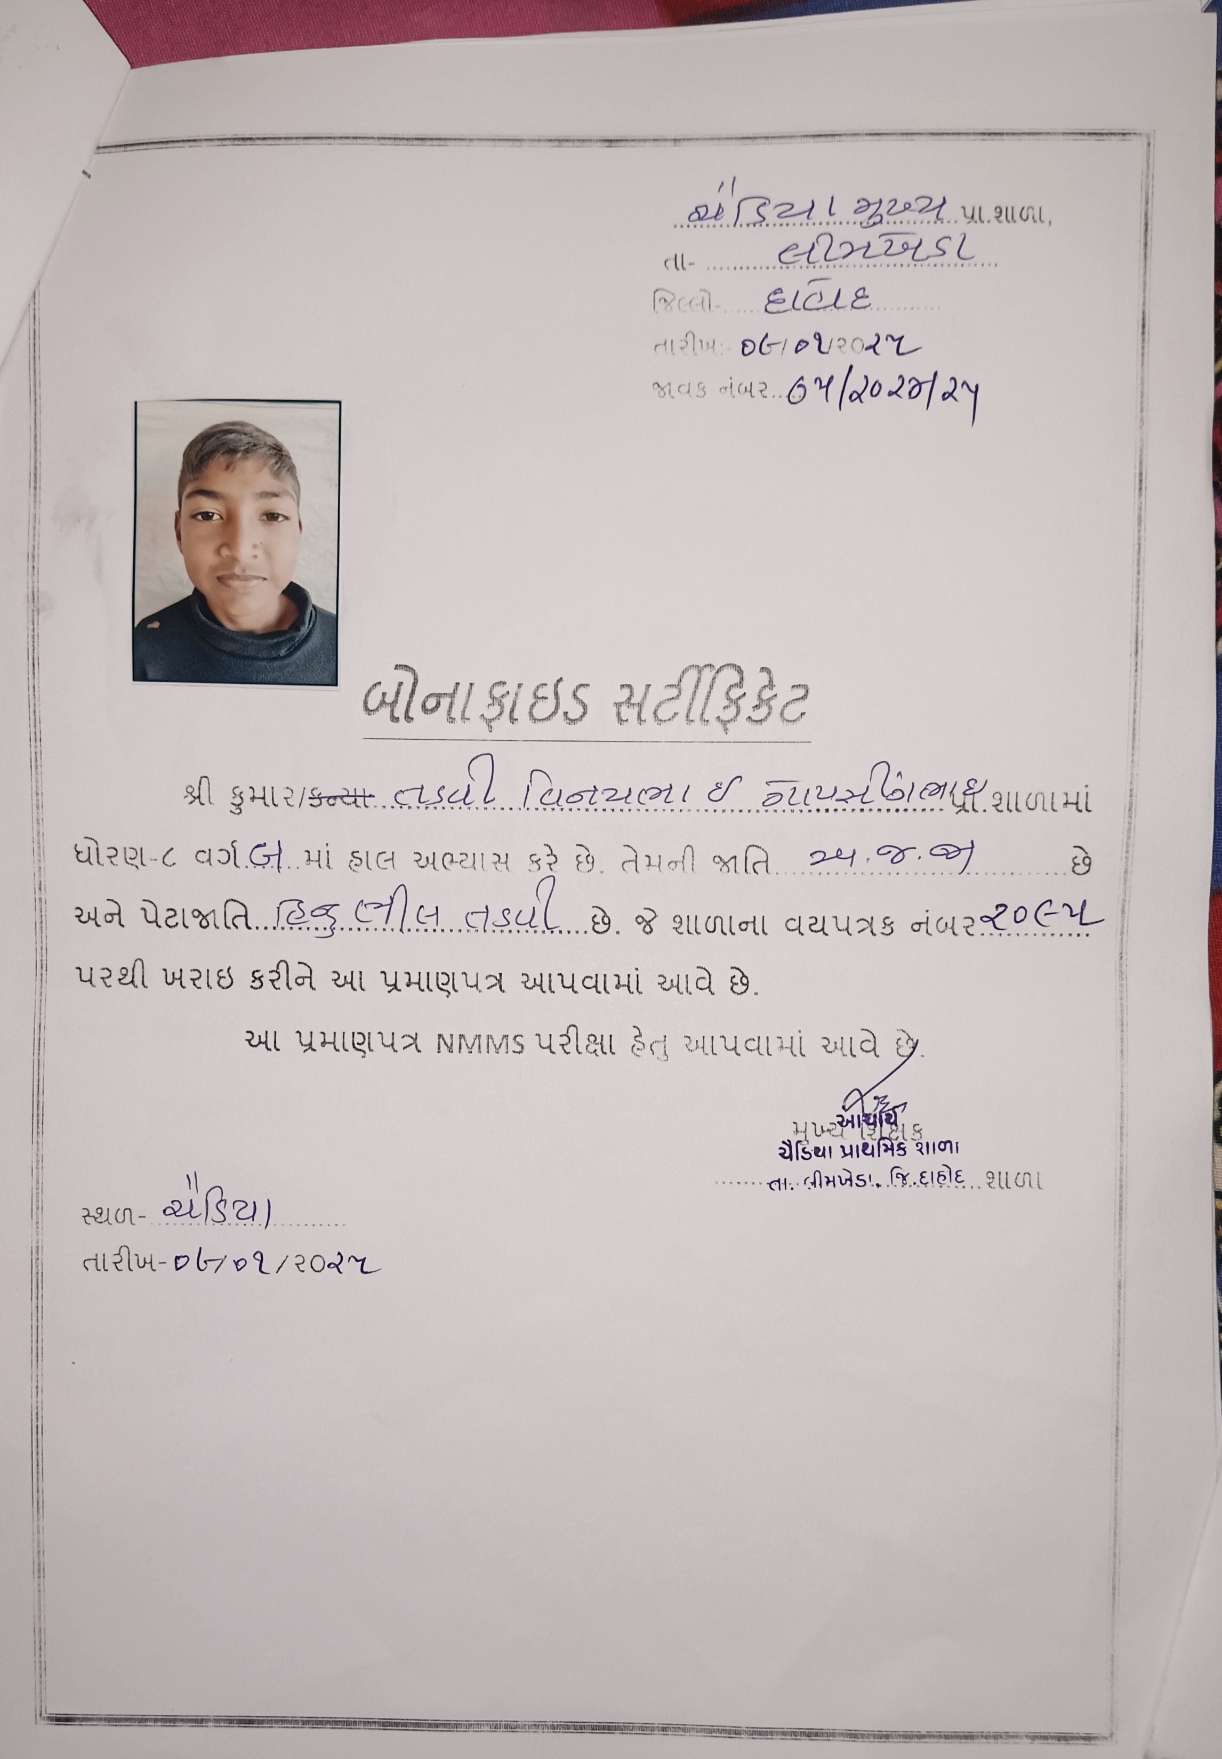 ચૈડિયા મુખ્ય પ્રા.શાળા,
તા- લીમખેડા
જિલ્લો- દાહોદ
તારીખ:- ૦૬/૦૧/૨૦૨૫
જાવક નંબર.. ૭૫/૨૦૨૪/૨૫
બોનાફાઇડ સર્ટીફિકેટ
શ્રી કુમાર/કન્યા તડવી વિનયભાઇ પ્રા.શાળામાં
ધોરણ-૮ વર્ગ બ માં હાલ અભ્યાસ કરે છે. તેમની જાતિ અ.જ.જા છે
અને પેટાજાતિ હિન્દુ ભીલ તડવી છે. જે શાળાના વયપત્રક નંબર ૨૦૯૫
પરથી ખરાઇ કરીને આ પ્રમાણપત્ર આપવામાં આવે છે.
આ પ્રમાણપત્ર NMMS પરીક્ષા હેતુ આપવામાં આવે છે.
આચાર્ય
મુખ્ય શિક્ષક
ચૈડિયા પ્રાથમિક શાળા
તા. લીમખેડા. જિ.દાહોદ શાળા
સ્થળ- ચૈડિયા
તારીખ-૦૬/૦૧/૨૦૨૫